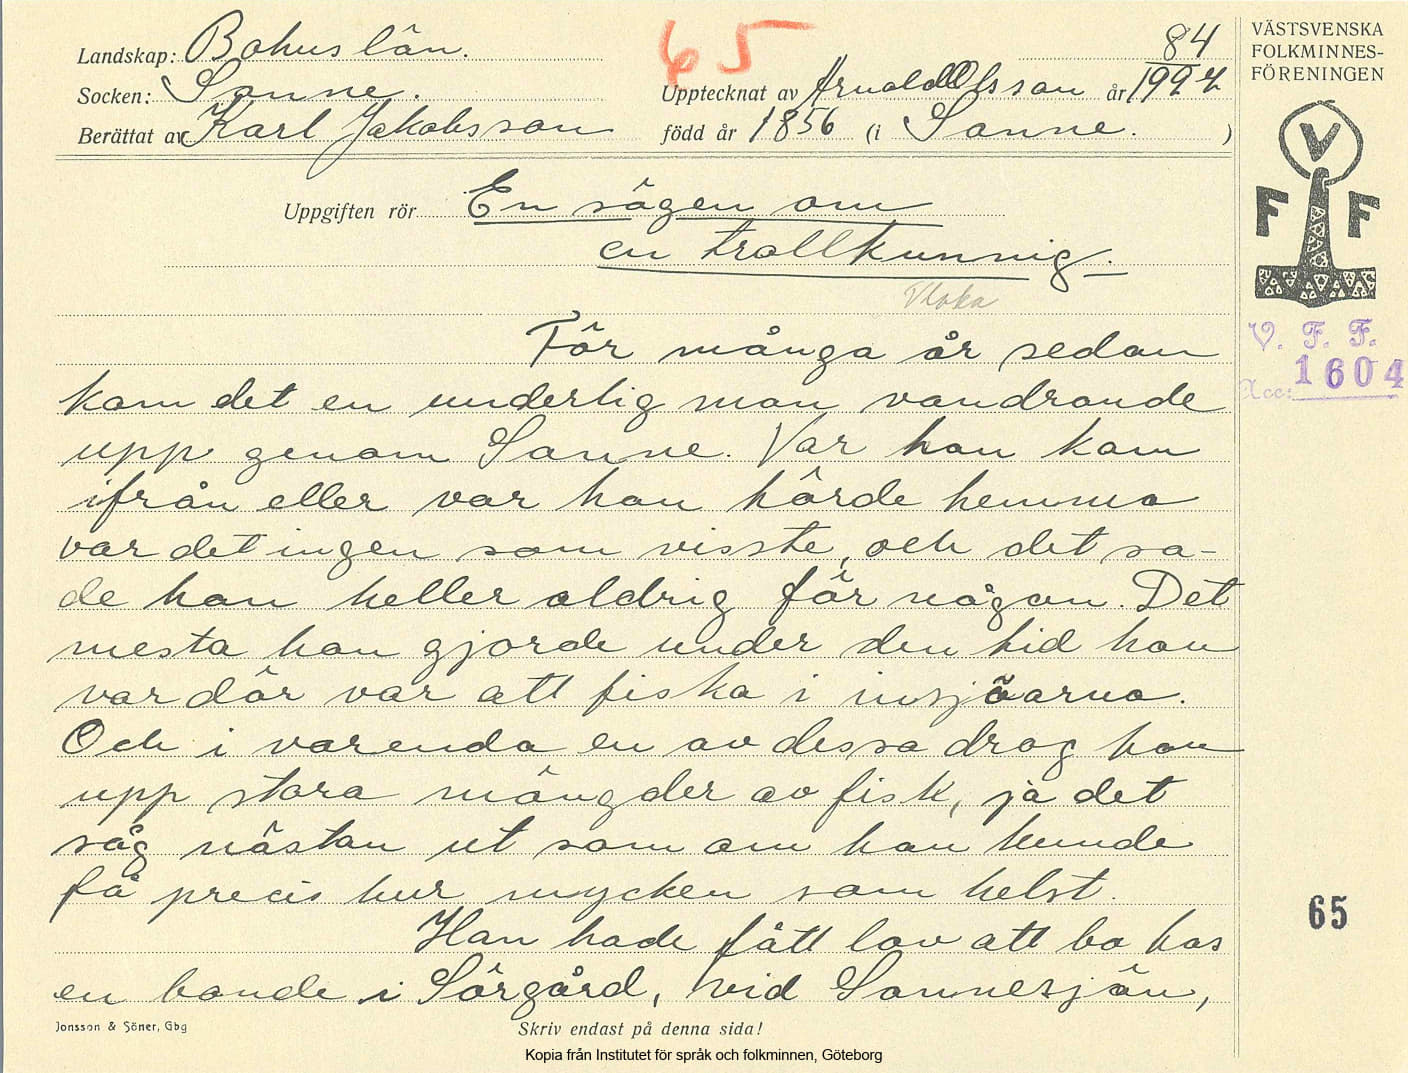 65
84
Landskap: Bohuslän.
Socken: Sanne.
Upptecknat av Arnold Olsson år 1927
Berättat av Karl Jakobsson född år 1856 (i Sanne. )
Uppgiften rör En sägen om
en trollkunnig.
För många år sedan
kom det en underlig man vandrande
upp genom Sanne. Var han kom
ifrån eller var han hörde hemma
var det ingen som visste, och det sa-
de han heller aldrig för någon. Det
mesta han gjorde under den tid han
var där var att fiska i insjöarna.
Och i varenda en av dessa drog han
upp stora mängder av fisk, ja det
såg nästan ut som om han kunde
få precis hur mycken som helst.
Han hade fått lov att bo hos
en bonde i Sörgård, vid Sannesjön,
Jonsson & Söner, Gbg
Skriv endast på denna sida!
Kopia från Institutet för språk och folkminnen, Göteborg
VÄSTSVENSKA
FOLKMINNES-
FÖRENINGEN
V
F F
V. F. F.
Acc: 1604
65